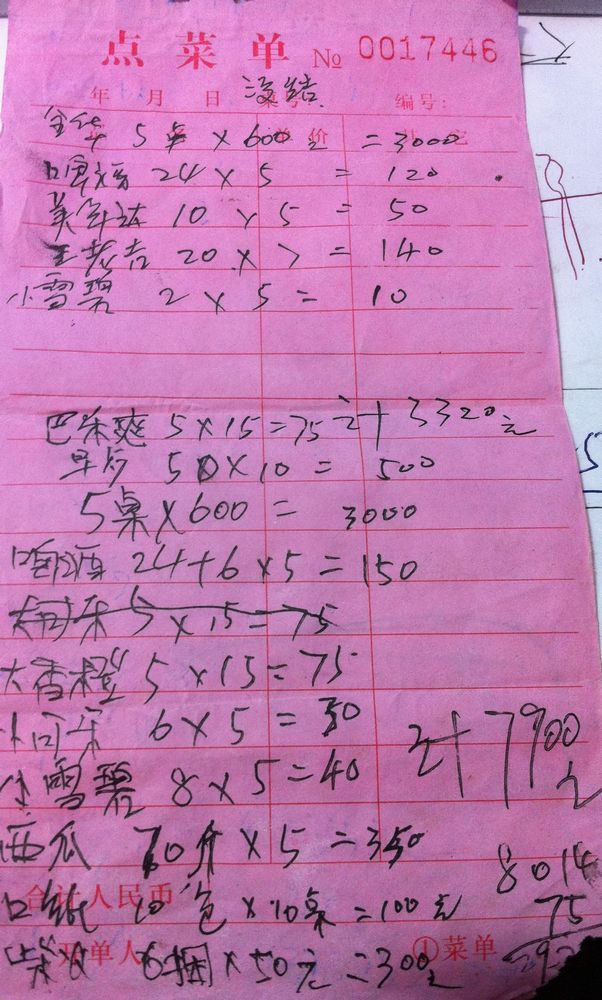 点菜单 No 0017446
年 月 日 没结 编号:
全华 5桌 × 600元 = 3000
啤酒 24 × 5 = 120
美年达 10 × 5 = 50
王老吉 20 × 7 = 140
小雪碧 2 × 5 = 10
计 3320元
5 × 15 = 75
早夕 50 × 10 = 500
5桌 × 600 = 3000
啤酒 24+6 × 5 = 150
大可乐 5 × 15 = 75
大香橙 5 × 15 = 75
小可乐 6 × 5 = 30
小雪碧 8 × 5 = 40
计 7900元
西瓜 70斤 × 5 = 350
8014
合计人民币
口纸 10包 × 10桌 = 100元
75
开单人 ①菜单
柴火 6捆 × 50元 = 300元